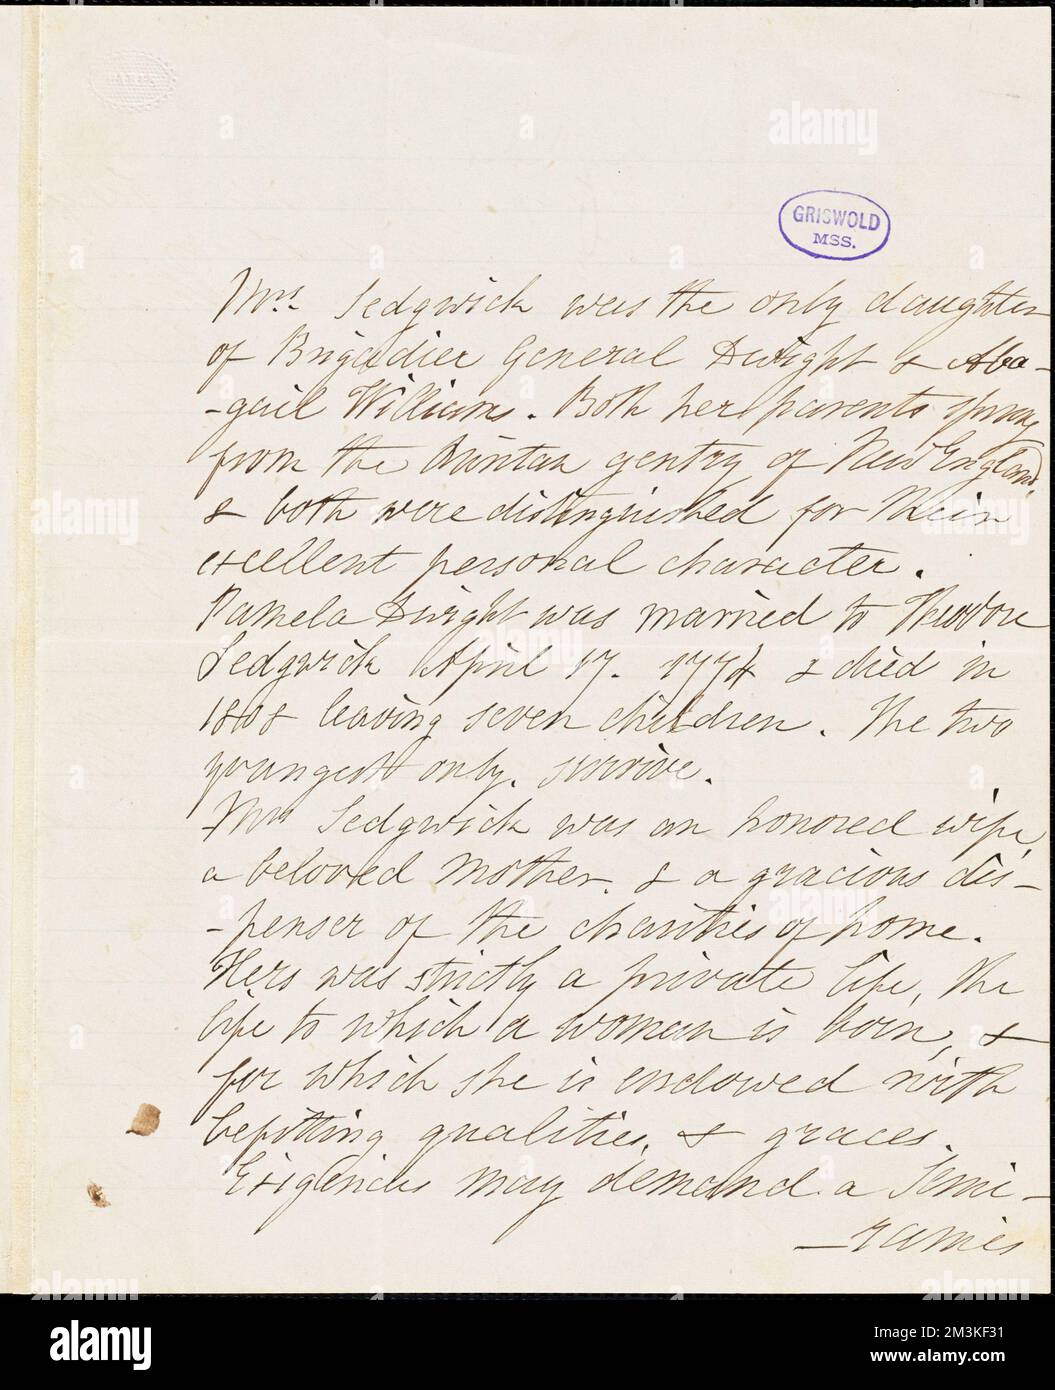 GRISWOLD
MSS.
Mrs. Sedgwick was the only daughter
of Brigadier General Dwight & Aba-
-gail Williams. Both her parents sprung
from the Puritan gentry of New England,
& both were distinguished for their
excellent personal character.
Pamela Dwight was married to Theodore
Sedgwick April 17. 1774 & died in
1808 leaving seven children. The two
youngest only. survive.
Mrs Sedgwick was an honored wife,
a beloved mother. & a gracious dis-
-penser of the charities of home.
Hers was strictly a private life, the
life to which a woman is born, &
for which she is endowed with
befitting qualities, & graces.
Exigencies may demand a Semi-
-ramis
alamy
Image ID: 2M3KF31
www.alamy.com